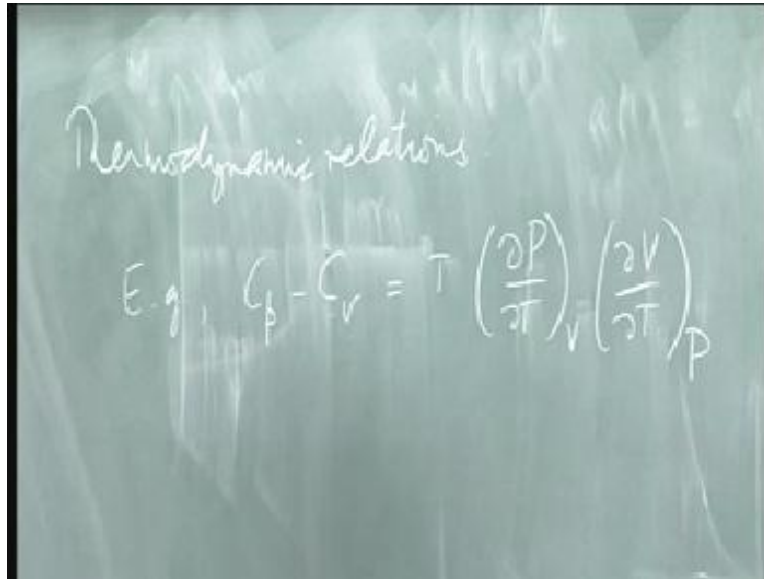 Thermodynamic relations.
E.g., C_p - C_v = T (∂P/∂T)_V (∂V/∂T)_P